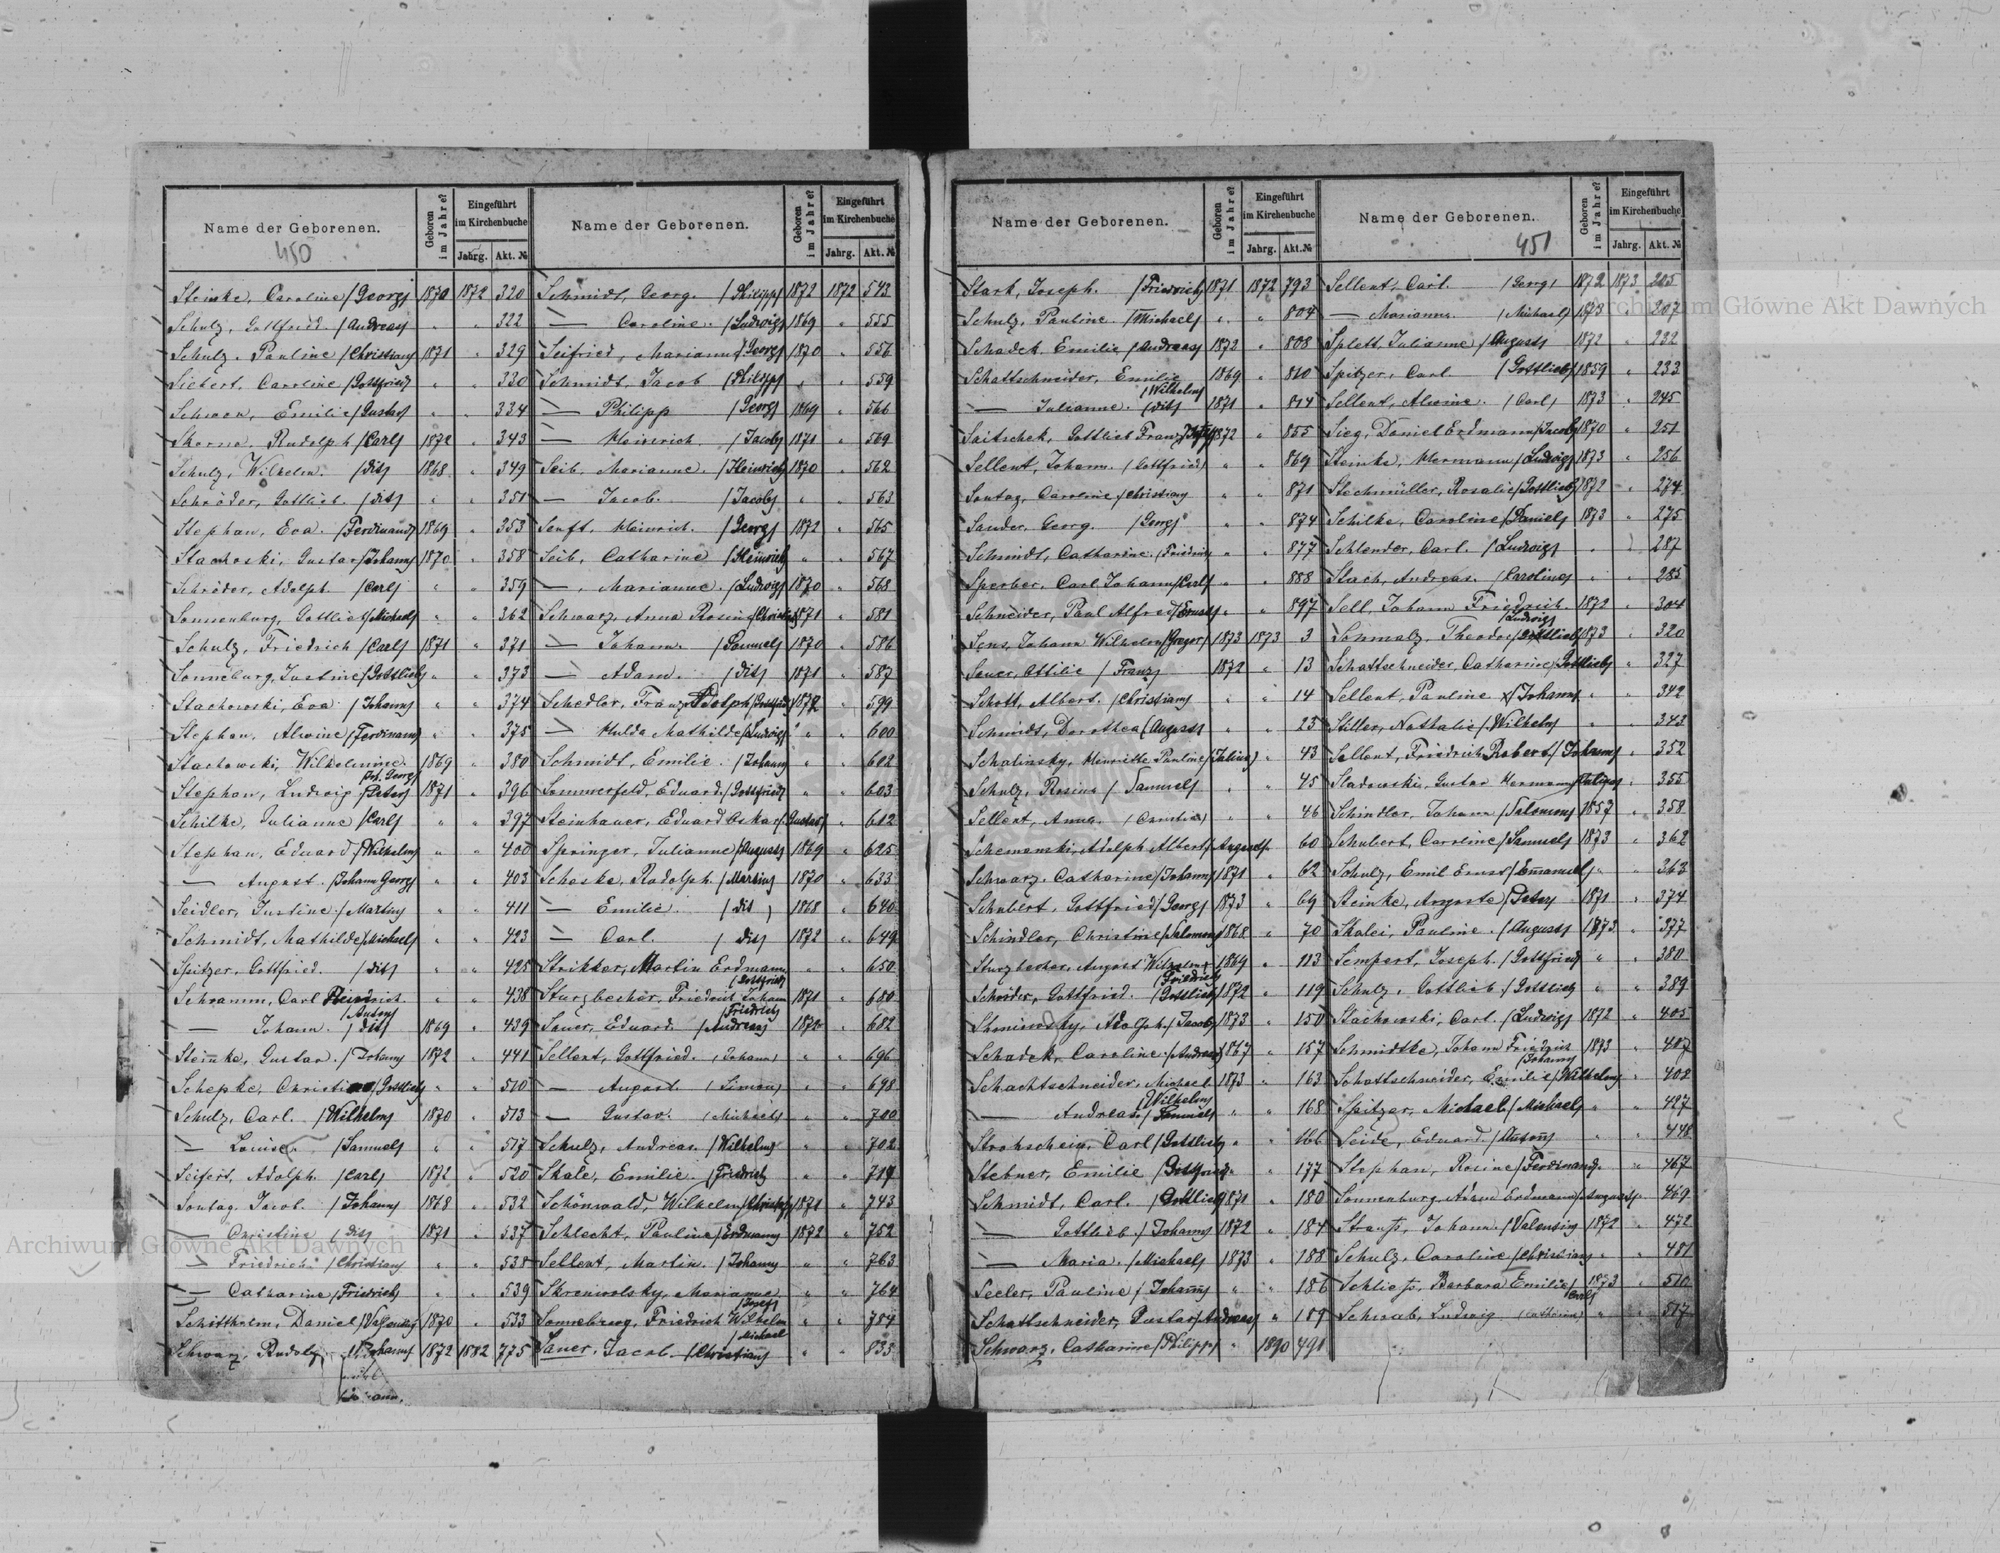 Name der Geborenen.
450
Geboren im Jahre?
Eingeführt im Kirchenbuche
Jahrg. Akt. №
Steinke, Caroline /Georg/ 1870 1872 320
Schulz, Gottfried /Andreas/ " " 322
Schulz, Pauline /Christian/ 1871 " 329
Siebert, Caroline /Gottfried/ " " 330
Schwan, Emilie /Gustav/ " " 334
Skorna, Rudolph /Carl/ 1872 " 343
Schulz, Wilhelm. /dis/ 1868 " 349
Schröder, Gottlieb. /dis/ " " 351
Stephan, Eva. /Ferdinand/ 1869 " 353
Stachoski, Gustav /Johann/ 1870 " 358
Schröder, Adolph. /Carl/ " " 359
Sonnenburg, Gottlieb /Michael/ " " 362
Schulz, Friedrich /Carl/ 1871 " 371
Sonneburg, Justine /Gottlieb/ " " 373
Stachowski, Eva /Johann/ " " 374
Stephan, Alwine /Ferdinand/ " " 375
Stachowski, Wilhelmine 1869 " 380
Stephan, Ludwig /Peter/ 1871 " 396
Schilke, Julianne /Carl/ " " 397
Stephan, Eduard /Wilhelm/ " " 400
— August. /Johann Georg/ " " 403
Seidler, Justine /Martin/ " " 411
Schmidt, Mathilde /Michael/ " " 423
Spitzer, Gottfried. /dis/ " " 425
Schramm, Carl Heinrich " " 438
/Anton/
— Johann. /dis/ 1869 " 439
Steinke, Gustav. /Johann/ 1872 " 441
Schepke, Christine /Gottlieb/ " " 510
Schulz, Carl. /Wilhelm/ 1870 " 513
— Louise. /Samuel/ " " 517
Seifert, Adolph. /Carl/ 1872 " 520
Sontag, Jacob. /Johann/ 1868 " 532
— Christine /dis/ 1871 " 537
— Friedrich /Christian/ " " 538
— Catharine /Friedrich/ " " 539
Schittholm, Daniel /Valentin/ 1870 " 533
Schwarz, Rudolf, /Johann/ 1872 1882 775
Name der Geborenen.
Geboren im Jahre?
Eingeführt im Kirchenbuche
Jahrg. Akt. №
Schmidt, Georg. /Philipp/ 1872 1872 543
— Caroline. /Ludwig/ 1869 " 555
Seifried, Marianne /Georg/ 1870 " 556
Schmidt, Jacob /Philipp/ " " 559
— Philipp /Georg/ 1869 " 566
— Heinrich. /Jacob/ 1871 " 569
Seib, Marianne. /Heinrich/ 1870 " 562
— Jacob. /Jacob/ " " 563
Senft, Heinrich. /Georg/ 1872 " 565
Seib, Catharine /Heinrich/ " " 567
— Marianne. /Ludwig/ 1870 " 568
Schwarz, Anna Rosine /Christian/ 1871 " 581
— Johann. /Samuel/ 1870 " 586
— Adam. /dis/ 1871 " 587
Schedler, Franz Adolph /Gottfried/ 1872 " 599
— Hulda Mathilde /Ludwig/ " " 600
Schmidt, Emilie. /Johann/ " " 602
Sommerfeld, Eduard. /Gottfried/ " " 603
Steinhauer, Eduard Oskar /Gustav/ " 612
Springer, Julianne /August/ 1869 " 625
Scheske, Rudolph. /Martin/ 1870 " 633
— Emilie. /dis/ 1868 " 640
— Carl. /dis/ 1872 " 649
Strikker, Martin Erdmann " " 650
/Gottfried/
Sturzbecher, Friedrich Johann 1871 " 680
/Friedrich/
Sauer, Eduard. /Andreas/ 1872 " 682
Sellent, Gottfried. /Johann/ " " 696
— August. /Simon/ " " 698
— Gustav. /Michael/ " " 700
Schulz, Andreas. /Wilhelm/ " " 702
Skale, Emilie. /Friedrich/ " " 717
Schönwald, Wilhelm /Christoph/ 1871 " 743
Schlecht, Pauline /Erdmann/ 1872 " 752
Sellent, Martin. /Johann/ " " 763
Skreniwolsky, Marianna " " 764
/Josef/
Sonneberg, Friedrich Wilhelm " " 784
/Michael/
Sauer, Jacob. /Christian/ " " 833
Name der Geborenen.
Geboren im Jahre?
Eingeführt im Kirchenbuche
Jahrg. Akt. №
Stark, Joseph. /Friedrich/ 1871 1872 793
Schulz, Pauline. /Michael/ " " 804
Schadek, Emilie /Andreas/ 1872 " 808
Schattschneider, Emilie 1869 " 810
/Wilhelm/
— Julianne. /dis/ 1871 " 814
Saitschek, Gottlieb Franz 1872 " 855
Sellent, Johann. /Gottfried/ " " 869
Sontag, Caroline /Christian/ " " 871
Sauder, Georg. /Georg/ " " 874
Schmidt, Catharine. /Friedrich/ " " 877
Sperber, Carl Johann /Carl/ " " 888
Schneider, Paul Alfred /Ernst/ " " 897
Sens, Johann Wilhelm /Gregor/ 1873 1873 3
Sauer, Ottilie /Franz/ 1872 " 13
Schott, Albert. /Christian/ " " 14
Schmidt, Dorothea /August/ " " 23
Schalinsky, Henriette Pauline /Julius/ " 43
Schulz, Rosine /Samuel/ " " 45
Sellent, Anna. /Christian/ " " 46
Schemanski, Adolph Albert /August/ " 60
Schwarz, Catharine /Johann/ 1871 " 62
Schubert, Gottfried /Georg/ 1873 " 69
Schindler, Christine /Salomon/ 1868 " 70
Sturzbecher, August Wilhelm 1869 " 113
/Friedrich/
Schröder, Gottfried. /Gottlieb/ 1872 " 119
Shminsky, Adolph. /Jacob/ 1873 " 150
Schadek, Caroline. /Andreas/ 1867 " 157
Schachtschneider, Michael 1873 " 163
/Wilhelm/
— Andreas. /Samuel/ " " 168
Strohschein, Carl /Gottlieb/ " " 166
Stebner, Emilie /Gottfried/ " " 177
Schmidt, Carl. /Gottlieb/ 1871 " 180
— Gottlieb. /Johann/ 1872 " 184
— Maria. /Michael/ 1873 " 188
Seeler, Pauline /Johann/ " " 186
Schattschneider, Gustav /Andreas/ " 189
Schwarz, Catharine /Philipp/ " 1890 491
Name der Geborenen.
451
Geboren im Jahre?
Eingeführt im Kirchenbuche
Jahrg. Akt. №
Sellent, Carl. /Georg/ 1872 1873 205
— Marianna. /Michael/ 1873 " 207
Splett, Julianne /August/ 1872 " 232
Spitzer, Carl. /Gottlieb/ 1859 " 233
Sellent, Alwine. /Carl/ 1873 " 245
Sieg, Daniel Erdmann /Jacob/ 1870 " 251
Steinke, Hermann /Ludwig/ 1873 " 256
Stechmüller, Rosalie /Gottlieb/ 1872 " 274
Schilke, Caroline /Daniel/ 1873 " 275
Schlender, Carl. /Ludwig/ " " 287
Stach, Andreas. /Caroline/ " " 285
Sell, Johann Friedrich 1872 " 304
/Ludwig/
Sonmalz, Theodor /Gottlieb/ 1873 " 320
Schattschneider, Catharine /Gottlieb/ " 327
Sellent, Pauline /Johann/ " " 342
Stiller, Nathalie /Wilhelm/ " " 343
Sellent, Friedrich Robert /Johann/ " 352
Sladowski, Gustav Hermann " 355
Schindler, Johann /Salomon/ 1857 " 358
Schubert, Caroline /Samuel/ 1873 " 362
Schulz, Emil Ernst /Emmanuel/ " " 363
Steinke, Auguste /Peter/ 1871 " 374
Skalei, Pauline. /August/ 1873 " 377
Sempert, Joseph. /Gottfried/ " " 380
Schulz, Gottlieb /Gottlieb/ " " 389
Stachowski, Carl. /Ludwig/ 1872 " 405
Schmidtke, Johann Friedrich 1873 " 407
/Johann/
Schattschneider, Emilie /Wilhelm/ " 408
Spitzer, Michael /Michael/ " " 427
Seide, Eduard. /Anton/ " " 448
Stephan, Rosine /Ferdinand/ " " 467
Sonnenburg, Adam Erdmann /August/ " 469
Strauß, Johann. /Valentin/ 1872 " 472
Schulz, Caroline /Christian/ " " 481
Schließ, Barbara Emilie /Carl/ 1873 " 510
Schwab, Ludwig /Catharina/ " " 517
Archiwum Główne Akt Dawnych
Archiwum Główne Akt Dawnych